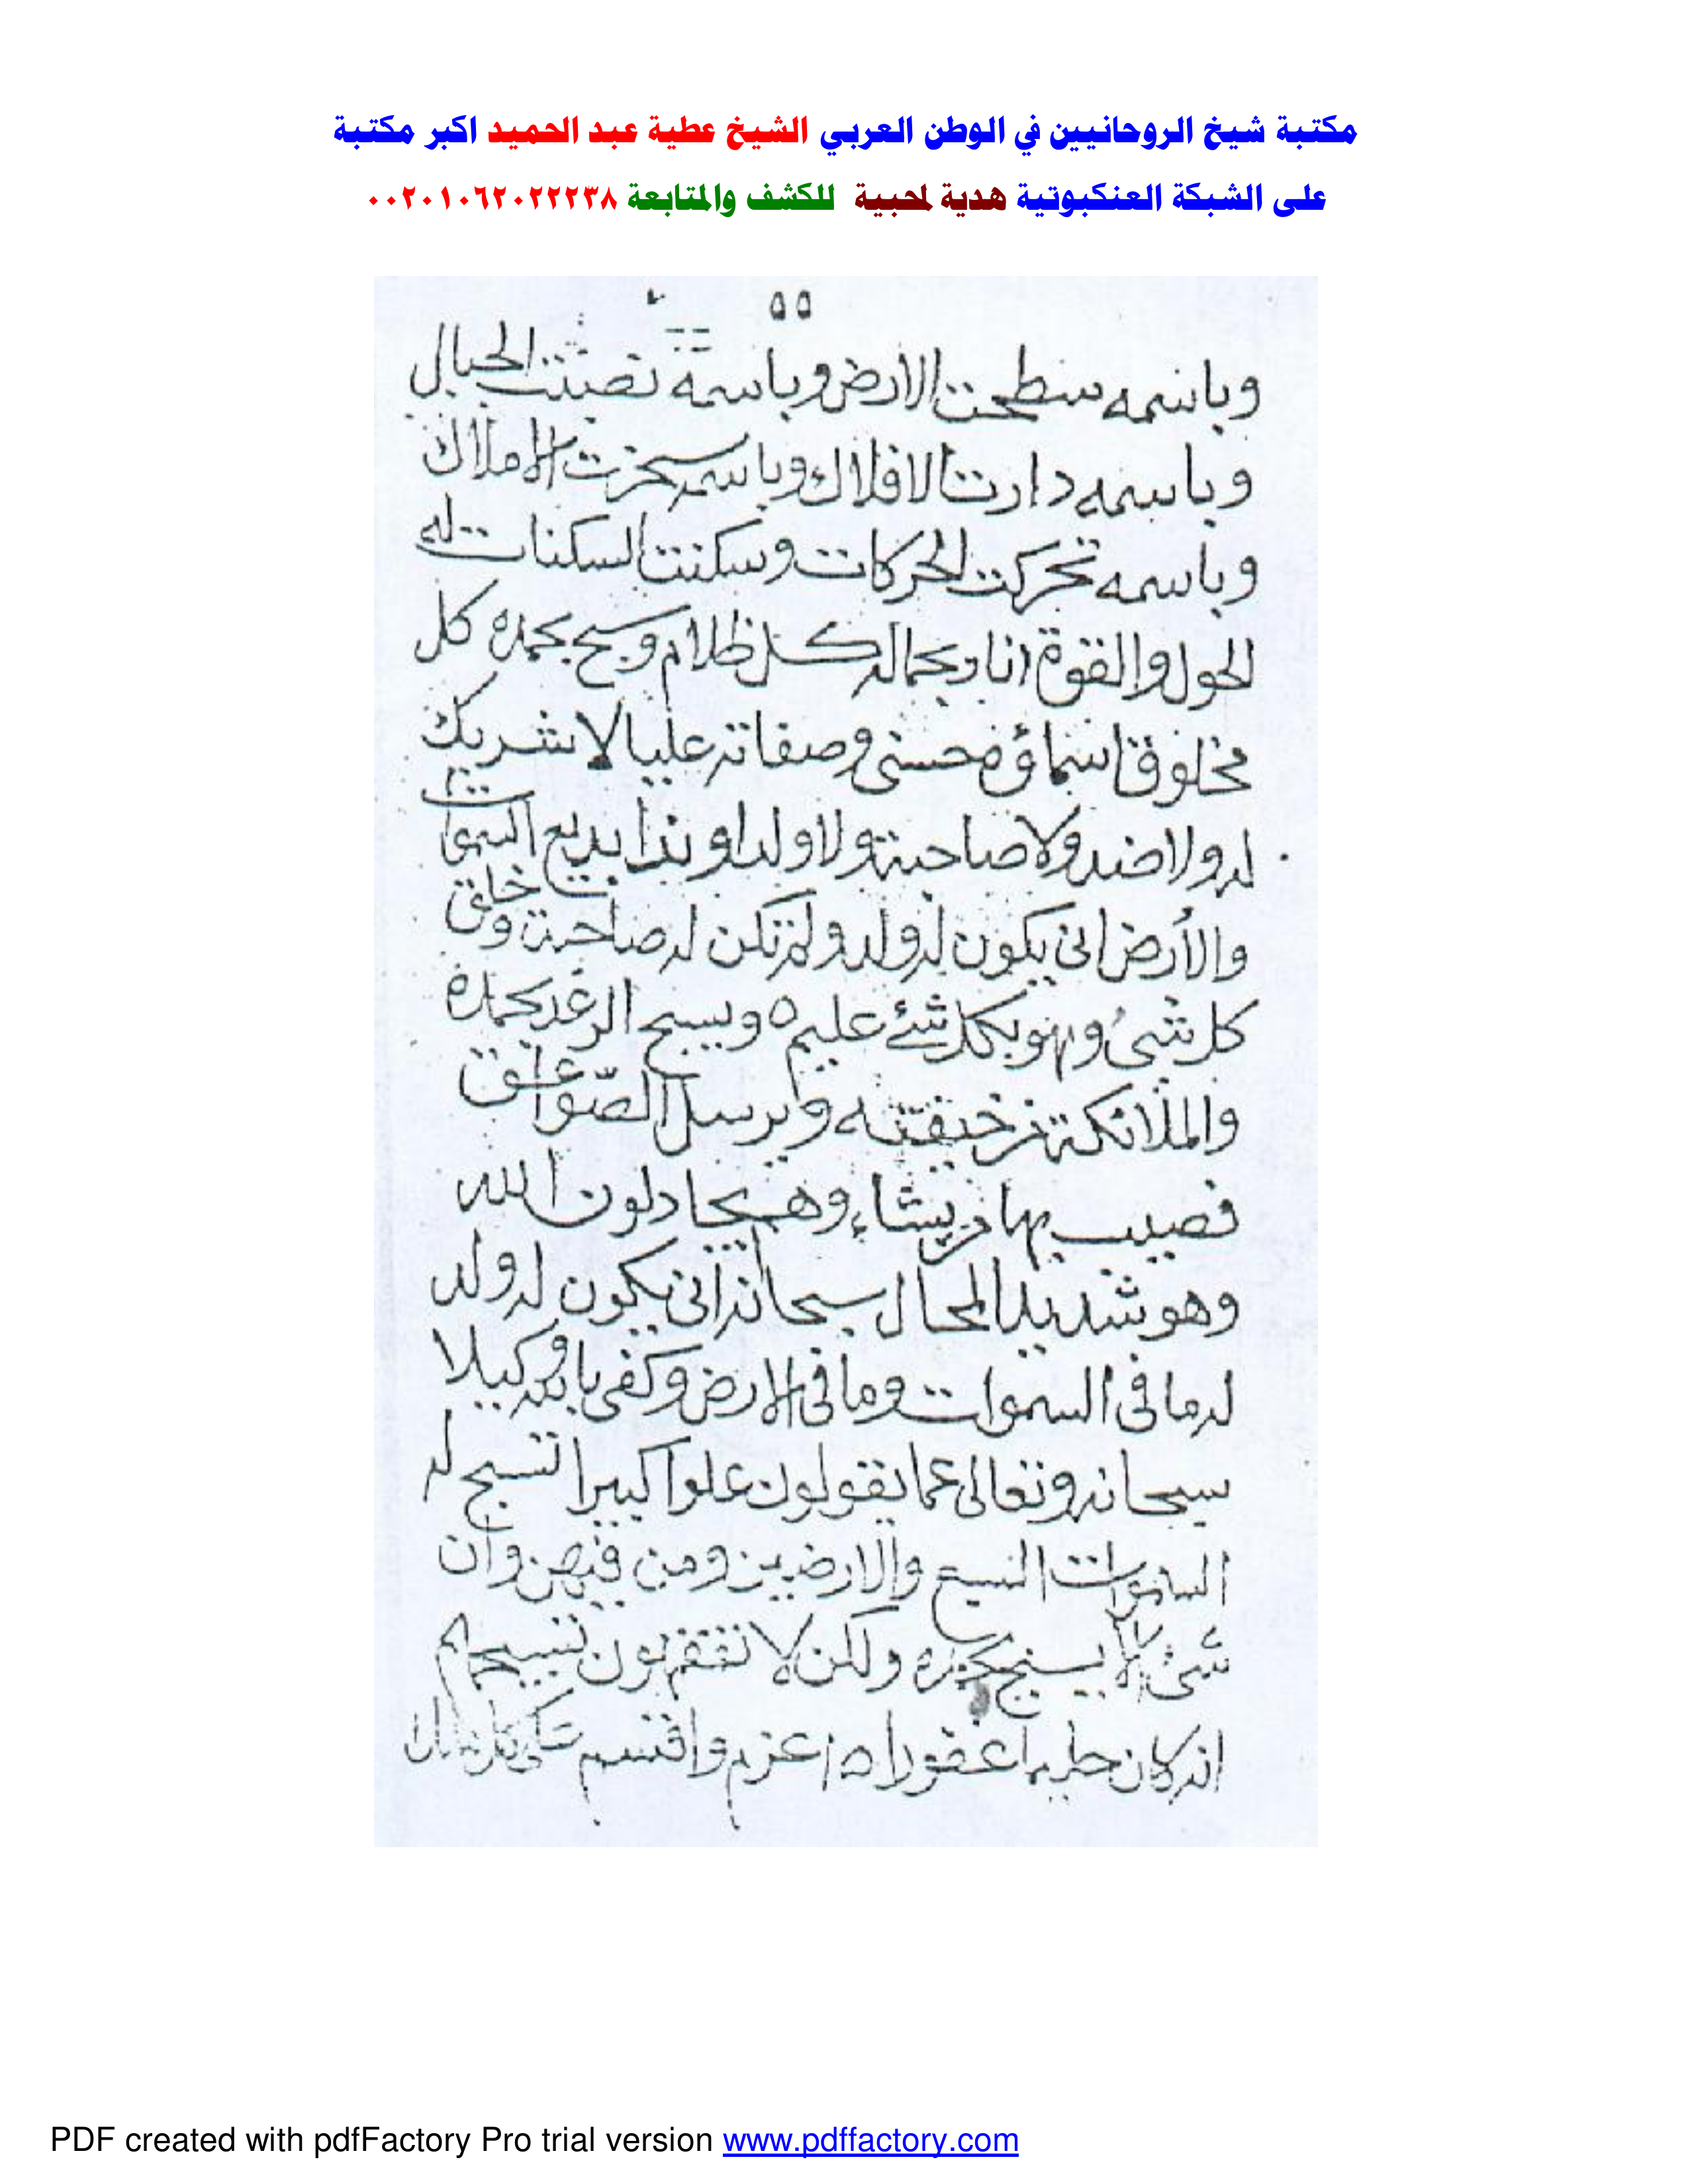 مكتبة شيخ الروحانيين في الوطن العربي الشيخ عطية عبد الحميد اكبر مكتبة
على الشبكة العنكبوتية هدية لمحبية للكشف والمتابعة ٠٠٢٠١٠٦٢٠٢٢٢٣٨
٥٥
وباسمه سطحت الارض وباسمه نصبت الجبال
وباسمه دارت الافلاك وباسمه سخرت الاملاك
وباسمه تحركت الحركات وسكنت السكنات له
الحول والقوة انار بجماله كل ظلام وسبح بحمده كل
مخلوق اسماؤه حسنى وصفاته عليا لا شريك
له ولا ضد ولا صاحبة ولا ولدا و ندا بديع السموات
والأرض انى يكون له ولد ولم تكن له صاحبة وخلق
كل شىء وهو بكل شئ عليم ٥ ويسبح الرعد بحمده
والملائكة من خيفته ويرسل الصّواعق
فصيب بها من يشاء وهم يجادلون الله
وهو شديد المحال سبحانه انى يكون له ولد
له ما فى السموات وما فى الارض وكفى بالله وكيلا
سبحانه وتعالى عما يقولون علوا كبيرا تسبح له
السموات السبع والارضين ومن فيهن وان
شئ الا يسبح بحمده ولكن لا تفقهون تسبيحهم
انه كان حليما غفورا ٥ اعزم واقسم
PDF created with pdfFactory Pro trial version www.pdffactory.com